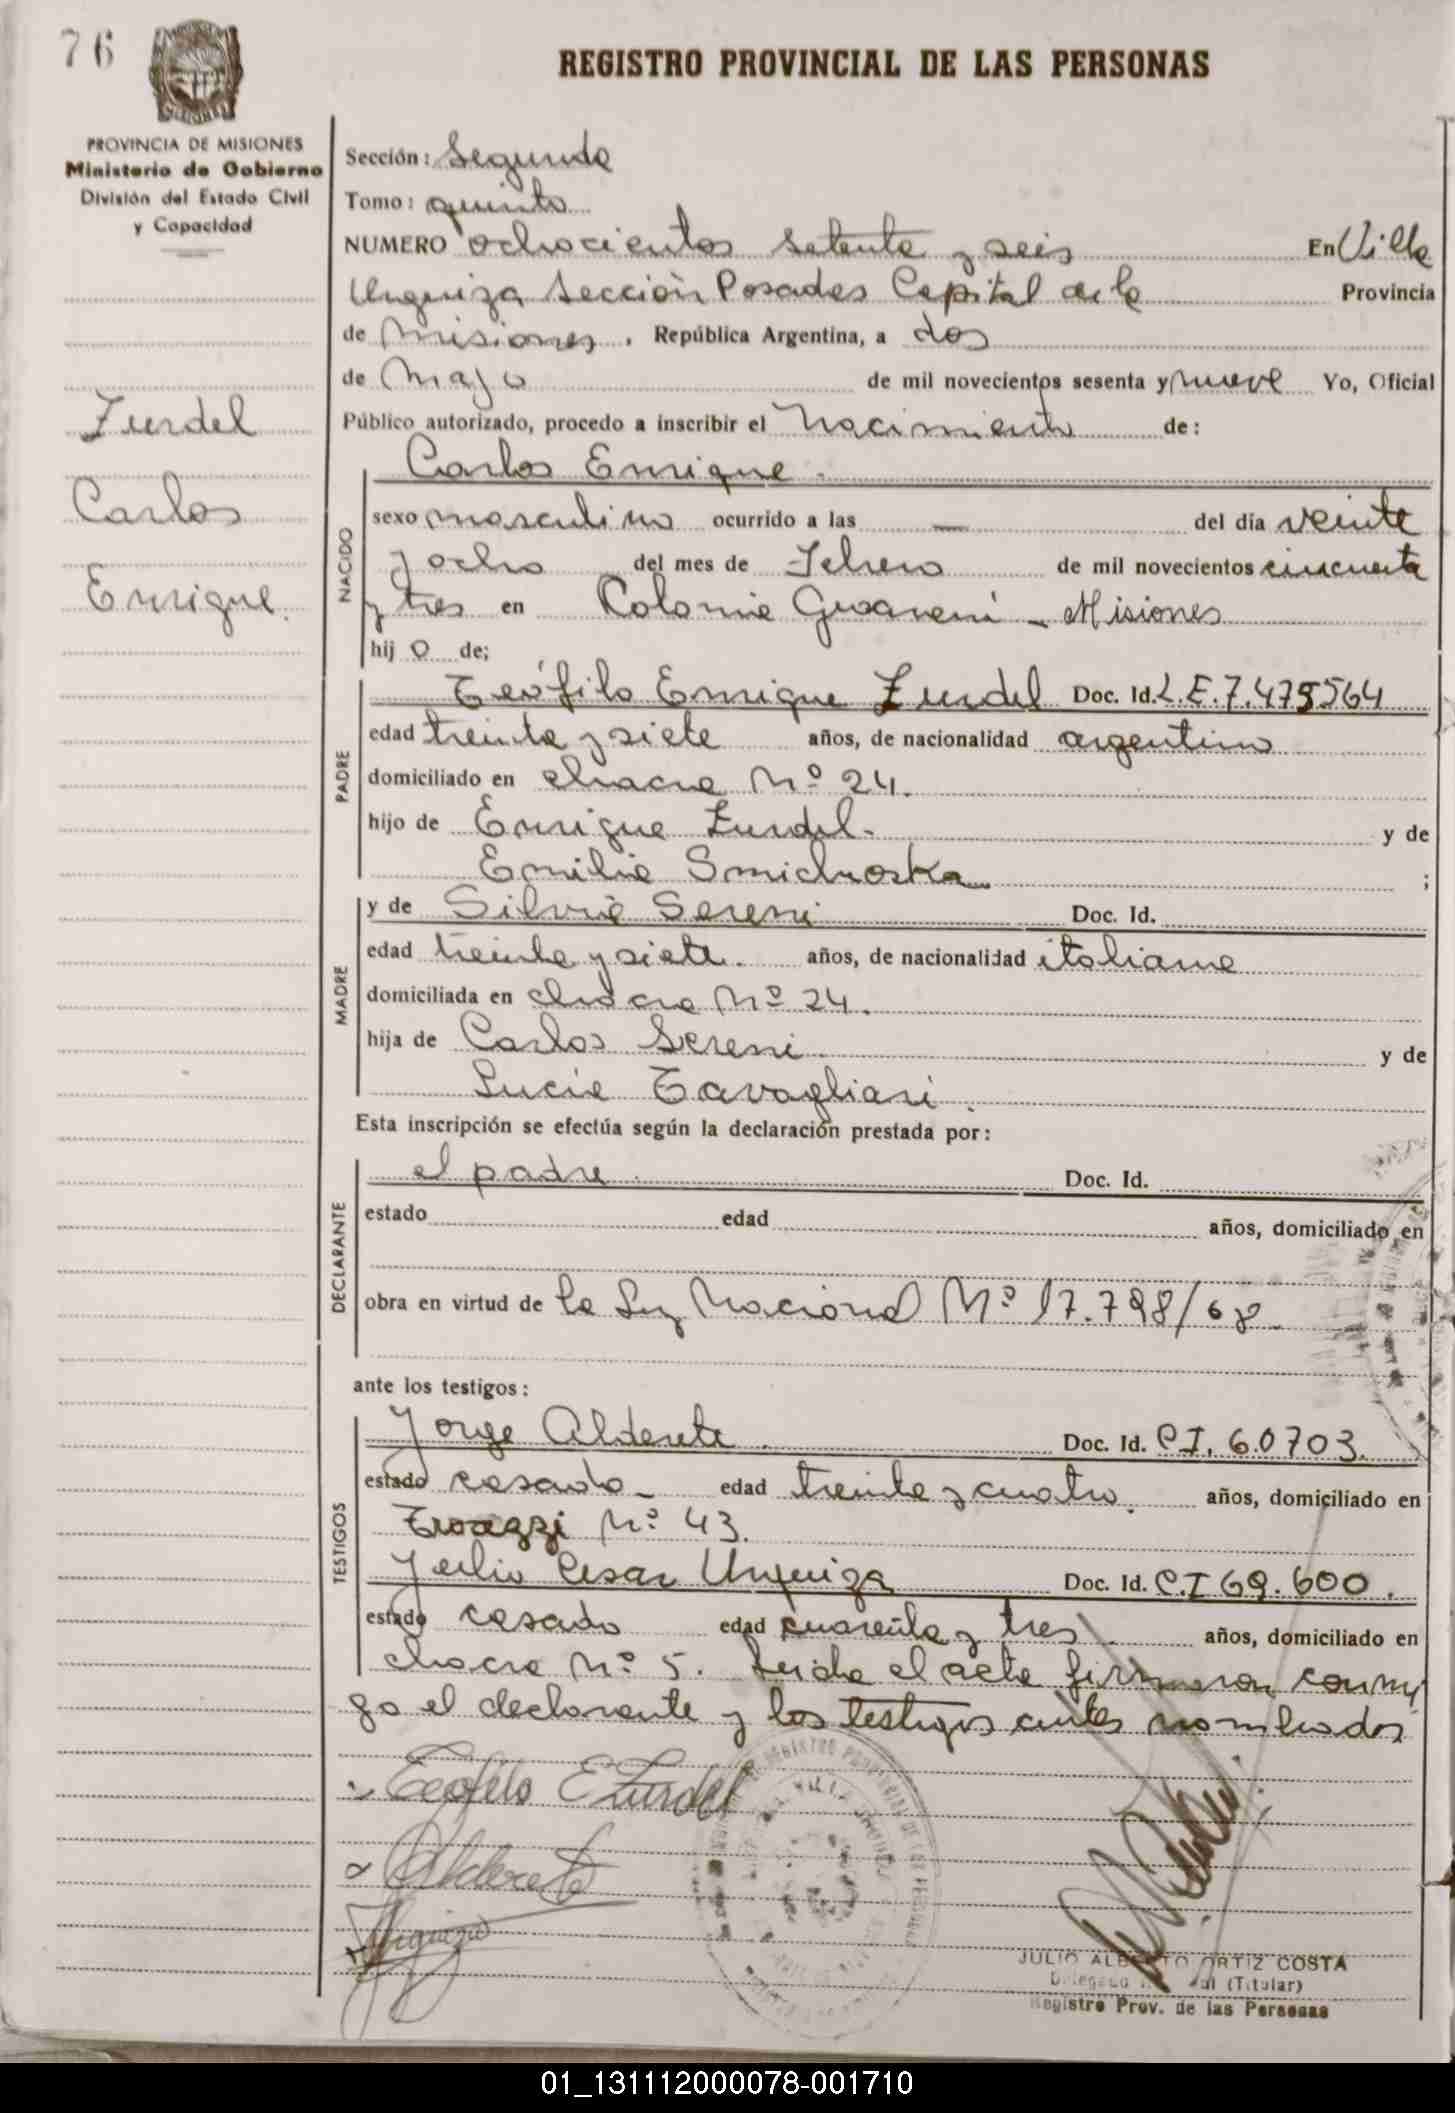 76
PROVINCIA DE MISIONES
Ministerio de Gobierno
División del Estado Civil
y Capacidad
Zurdel
Carlos
Enrique.
REGISTRO PROVINCIAL DE LAS PERSONAS
Sección: Segunda
Tomo: quinto
NUMERO ochocientos setenta y seis En Villa
Urquiza Sección Posadas Capital de la Provincia
de Misiones, República Argentina, a dos
de Mayo de mil novecientos sesenta y nueve Yo, Oficial
Público autorizado, procedo a inscribir el Nacimiento de:
Carlos Enrique.
NACIDO
sexo masculino ocurrido a las — del día veinte
y ocho del mes de Febrero de mil novecientos cincuenta
y tres en Colonia Guaraní - Misiones
hijo de;
PADRE
Teófilo Enrique Zurdel Doc. Id. L.E. 7.475564
edad treinta y siete años, de nacionalidad argentino
domiciliado en chacra Nº 24.
hijo de Enrique Zurdel. y de
Emilia Smichoska ;
MADRE
y de Silvia Sereni Doc. Id.
edad treinta y siete. años, de nacionalidad italiana
domiciliada en chacra Nº 24.
hija de Carlos Sereni y de
Lucía Tavagliari.
Esta inscripción se efectúa según la declaración prestada por:
DECLARANTE
el padre Doc. Id.
estado edad años, domiciliado en
obra en virtud de la Ley Nacional Nº 17.798/68.
ante los testigos:
TESTIGOS
Jorge Alderete Doc. Id. C.I. 60703.
estado casado edad treinta y cuatro. años, domiciliado en
Nº 43.
Julio Cesar Urquiza Doc. Id. C.I 69.600.
estado casado edad cuarenta y tres años, domiciliado en
chacra Nº 5. Leída el acta firmaron conmi
go el declarante y los testigos antes nombrados
Teofilo E Zurdel
Alderete
Urquiza
JULIO ALBERTO ORTIZ COSTA
(Titular)
Registro Prov. de las Personas
01_131112000078-001710